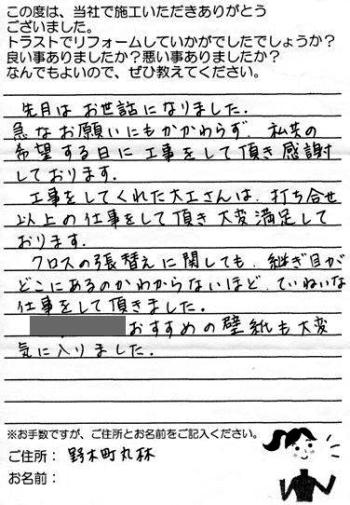 この度は、当社で施工いただきありがとう
ございました。
トラストでリフォームしていかがでしたでしょうか？
良い事ありましたか？悪い事ありましたか？
なんでもよいので、ぜひ教えてください。
先月はお世話になりました.
急なお願いにもかかわらず、私共の
希望する日に工事をして頂き感謝
しております.
工事をしてくれた大工さんは、打ち合せ
以上の仕事をして頂き大変満足して
おります.
クロスの張替えに関しても、継ぎ目が
どこにあるのかわからないほど、ていねいな
仕事をして頂きました.
おすすめの壁紙も大変
気に入りました.
※お手数ですが、ご住所とお名前をご記入ください。
ご住所： 野木町丸林
お名前：